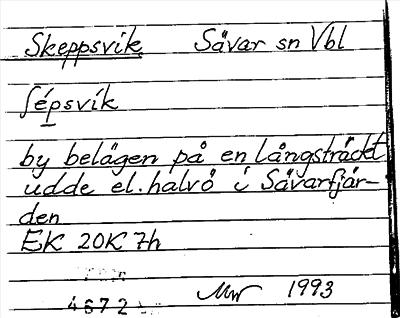 Skeppsvik Sävar sn Vbl
ʃépsvík
by belägen på en långsträckt
udde el. halvö i Sävarfjär-
den
EK 20K 7h
4672 MW 1993